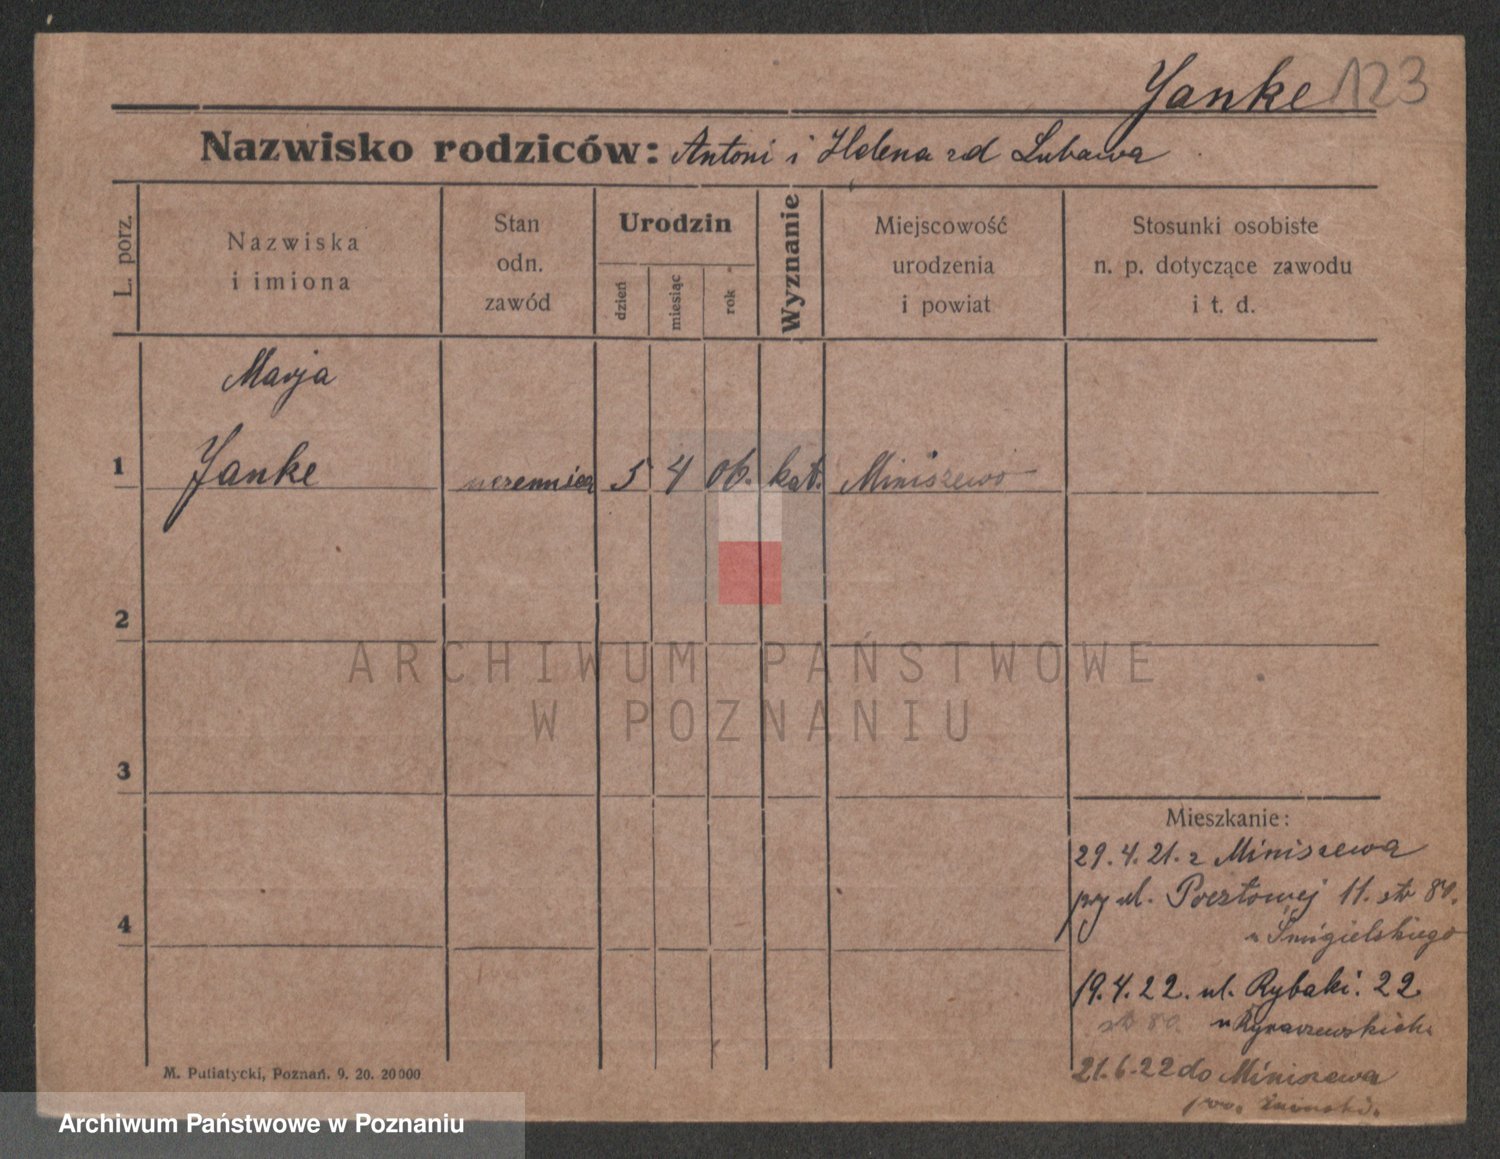 Yanke 123
Nazwisko rodziców: Antoni i Helena zd Lubawa
L. porz.
Nazwiska
i imiona
Stan
odn.
zawód
Urodzin
dzień
miesiąc
rok
Wyznanie
Miejscowość
urodzenia
i powiat
Stosunki osobiste
n. p. dotyczące zawodu
i t. d.
Marja
1 Yanke uczennica 5 4 06. kat. Miniszewo
2
3
4
ARCHIWUM PAŃSTWOWE
W POZNANIU
Mieszkanie:
29.4.21. z Miniszewa
przy ul. Pocztowej 11. str 80.
u Śmigielskiego
19.4.22. ul. Rybaki. 22
str 80.
21.6.22 do Miniszewa
M. Putiatycki, Poznań. 9. 20. 20000
Archiwum Państwowe w Poznaniu